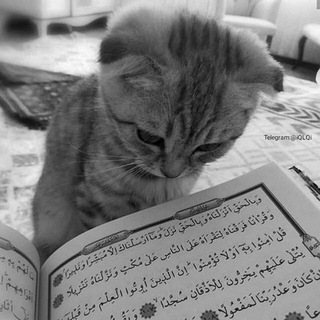 Telegram:@iQLQi
وَبِالْحَقِّ أَنزَلْنَاهُ وَبِالْحَقِّ نَزَلَ وَمَا أَرْسَلْنَاكَ إِلَّا مُبَشِّرًا وَنَذِيرًا
وَقُرْآنًا فَرَقْنَاهُ لِتَقْرَأَهُ عَلَى النَّاسِ عَلَى مُكْثٍ وَنَزَّلْنَاهُ تَنزِيلًا
قُلْ آمِنُوا بِهِ أَوْ لَا تُؤْمِنُوا إِنَّ الَّذِينَ أُوتُوا الْعِلْمَ مِن قَبْلِهِ
يُتْلَى عَلَيْهِمْ يَخِرُّونَ لِلْأَذْقَانِ سُجَّدًا
كَانَ وَعْدُ رَبِّنَا لَمَفْعُولًا